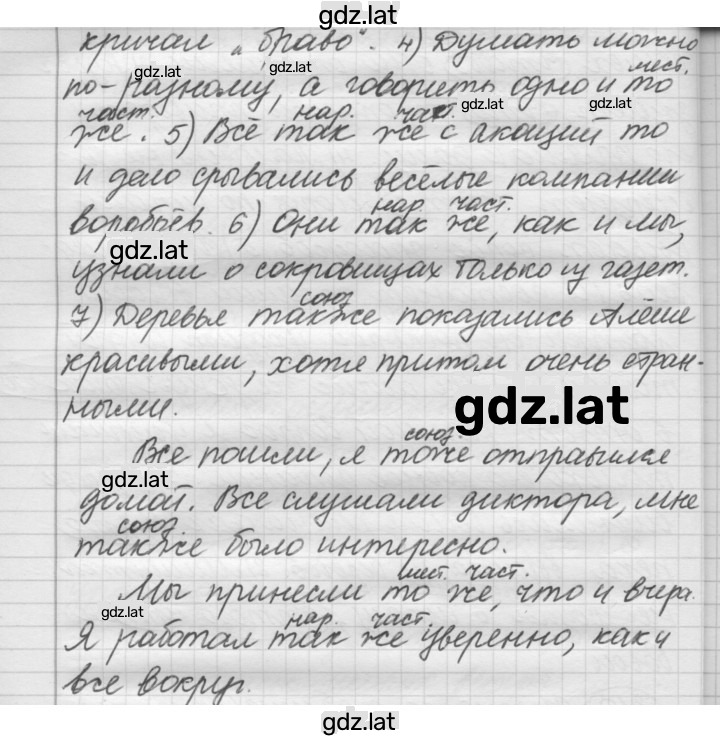 gdz.lat
кричал „браво“. 4) Думать можно
gdz.lat gdz.lat мест.
по-разному, а говорить одно и то
част. нар. част. gdz.lat gdz.lat
же. 5) Всё так же с акаций то
и дело срывались весёлые компании
нар. част.
воробьёв. 6) Они так же, как и мы,
gdz.lat
узнали о сокровищах только из газет.
союз
7) Деревья также показались Алёше
красивыми, хотя притом очень стран-
gdz.lat
ными.
союз.
Все пошли, я тоже отправился
gdz.lat
домой. Все слушали диктора, мне
союз.
также было интересно.
мест. част.
Мы принесли то же, что и вчера.
gdz.lat нар. част.
Я работал так же уверенно, как и
все вокруг.
gdz.lat